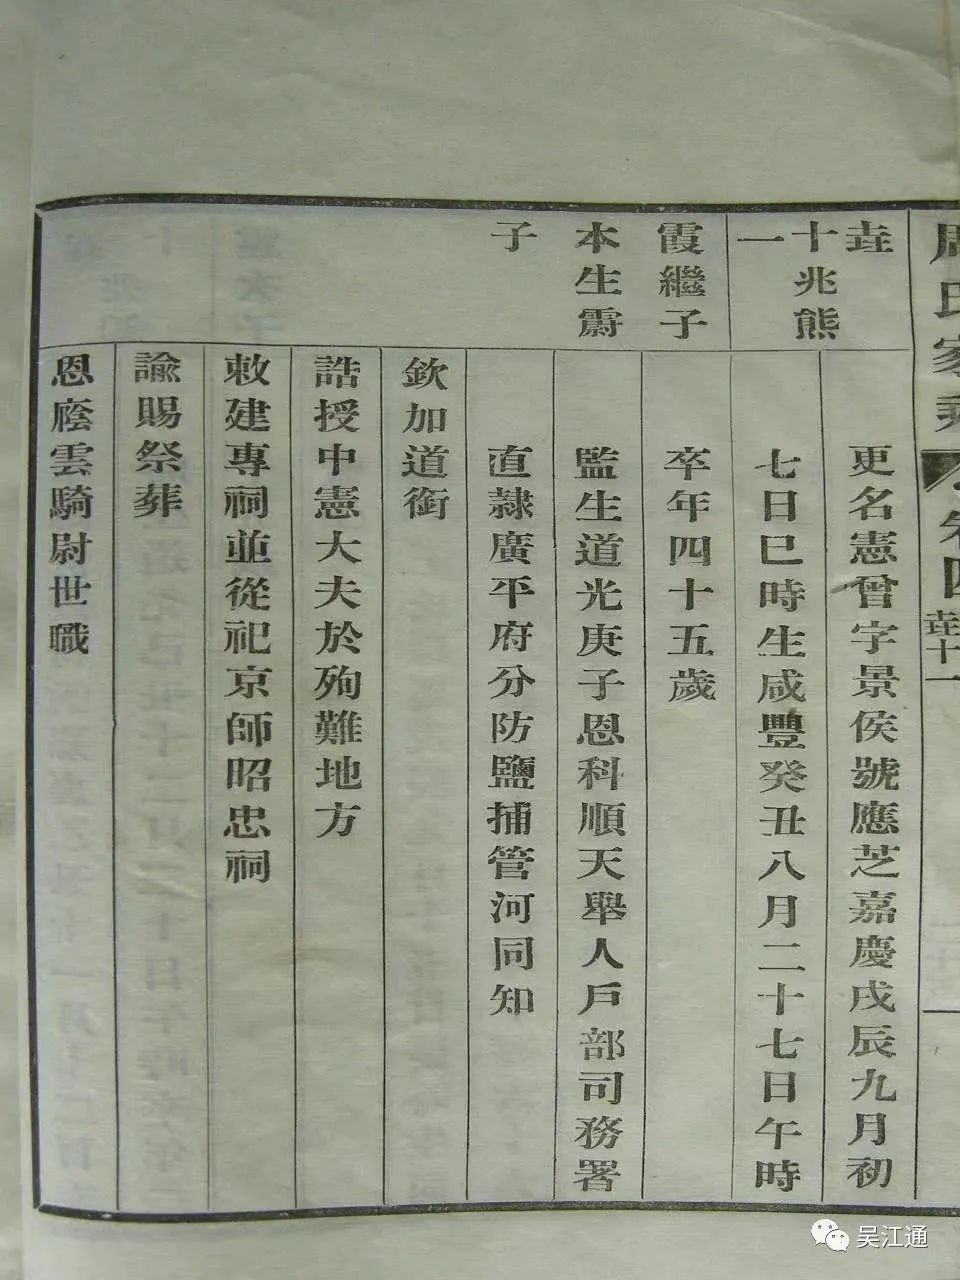 周氏家乘 卷四 垚十一
垚
十兆熊
一
霞繼子
本生霨
子
更名憲曾字景侯號應芝嘉慶戊辰九月初
七日巳時生咸豐癸丑八月二十七日午時
卒年四十五歲
監生道光庚子恩科順天舉人戶部司務署
直隸廣平府分防鹽捕管河同知
欽加道銜
誥授中憲大夫於殉難地方
敕建專祠並從祀京師昭忠祠
諭賜祭葬
恩廕雲騎尉世職
吴江通